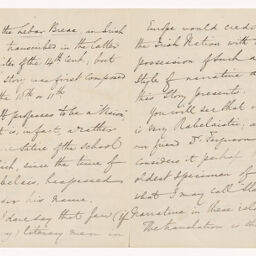 the Lebar Breac, an Irish
transcribed in the latter
of the 14th Cent, but
story was first composed
the 10th or 11th
It professes to be a Vision
it is, in fact, a rather
of the school
since the time of
has passed
his name.
I dare say that few (if
any) literary men in
Europe would credit
the Irish Nation with the
possession of such a
Style of narrative as
this Story presents.
You will see that it
is very Rabelaistic, and
our friend Dr. Ferguson
considers it perhaps the
oldest specimen of
what I may call
Narrative in these
The translation is the